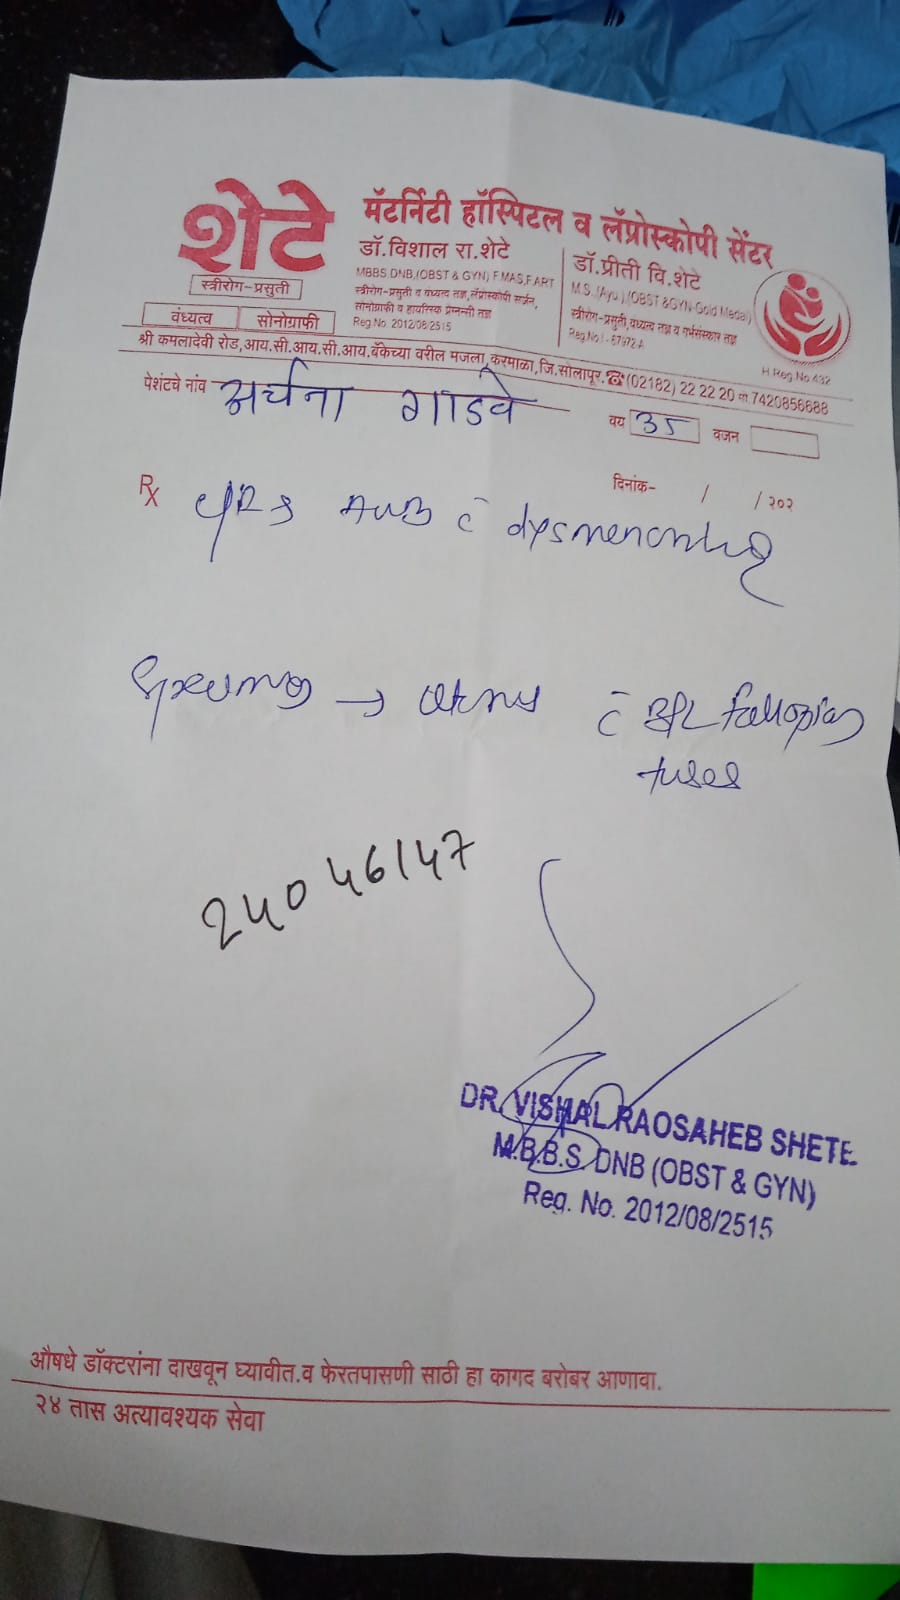 शेटे
मॅटर्निटी हॉस्पिटल व लॅप्रोस्कोपी सेंटर
स्त्रीरोग-प्रसुती
वंध्यत्व सोनोग्राफी
डॉ.विशाल रा.शेटे
MBBS,DNB,(OBST & GYN) F.MAS,F.ART
स्त्रीरोग-प्रसुती व वंध्यत्व तज्ञ,लॅप्रोस्कोपी सर्जन,
सोनोग्राफी व हायरिस्क प्रेग्नन्सी तज्ञ
Reg.No. 2012/08/2515
डॉ.प्रीती वि.शेटे
M.S.,(Ayu.),(OBST &GYN-Gold Medal)
स्त्रीरोग-प्रसुती,वंध्यत्व तज्ञ व गर्भसंस्कार तज्ञ
Reg.No.I-67972-A
H Reg.No.432
श्री कमलादेवी रोड,आय.सी.आय.सी.आय.बँकेच्या वरील मजला,करमाळा,जि.सोलापूर.☎(02182) 22 22 20 मो 7420856688
पेशंटचे नांव अर्चना गाडवे वय 35 वजन
दिनांक- / /२०२
Rx AUB c̄ dysmenorrhea
→ uterus c̄ B/L fallopian
tubes
24046147
DR. VISHAL RAOSAHEB SHETE
M.B.B.S. DNB (OBST & GYN)
Reg. No. 2012/08/2515
औषधे डॉक्टरांना दाखवून घ्यावीत.व फेरतपासणी साठी हा कागद बरोबर आणावा.
२४ तास अत्यावश्यक सेवा